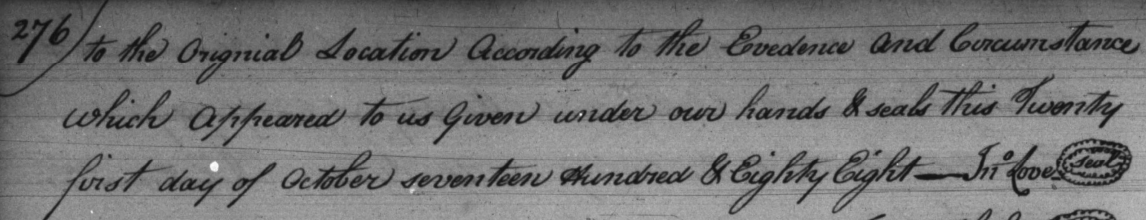 276 to the Orignial Location According to the Evedence and Circumstance
which Appeared to us Given under our hands & seals this Twenty
first day of October seventeen Hundred & Eighty Eight — Jno Love seal